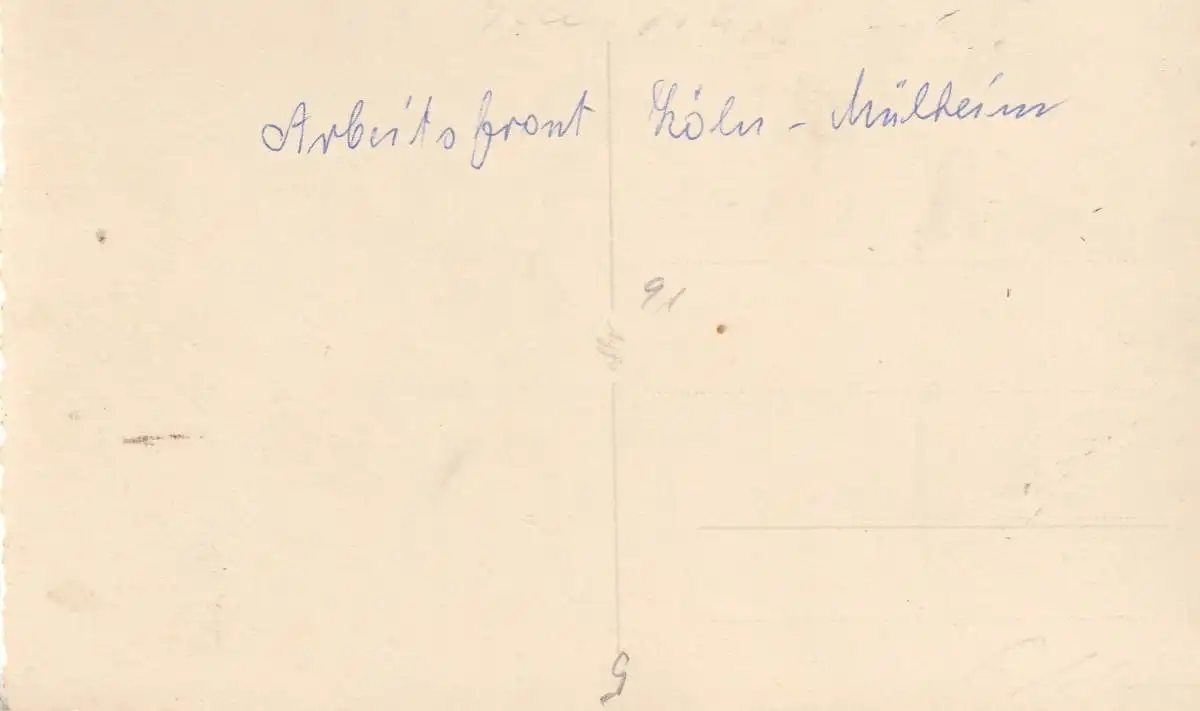 Arbeitsfront Köln - Mülheim
91
9